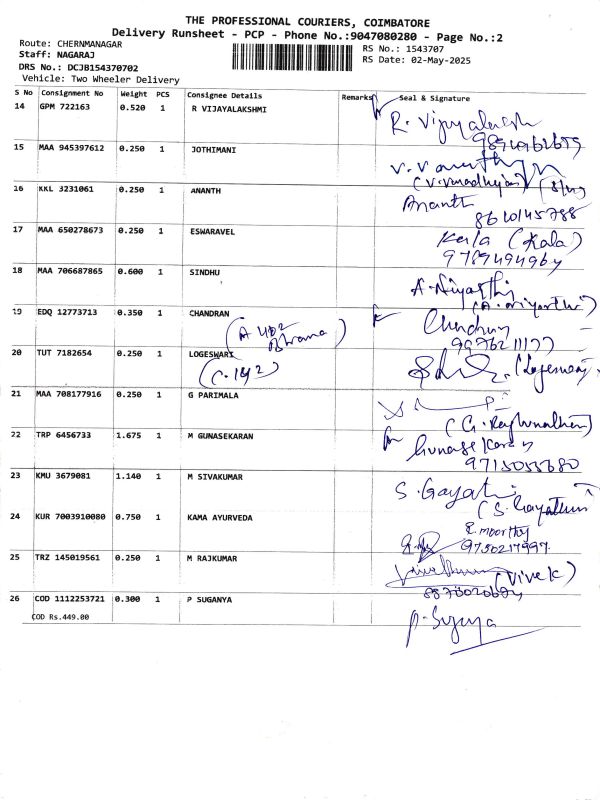 THE PROFESSIONAL COURIERS, COIMBATORE
Delivery Runsheet - PCP - Phone No.:9047080280 - Page No.:2
Route: CHERNMANAGAR
Staff: NAGARAJ
RS No.: 1543707
DRS No.: DCJB154370702
RS Date: 02-May-2025
Vehicle: Two Wheeler Delivery
S No Consignment No Weight PCS Consignee Details Remarks Seal & Signature
14 GPM 722163 0.520 1 R VIJAYALAKSHMI
R. Vijayalaksh
15 MAA 945397612 0.250 1 JOTHIMANI
16 KKL 3231061 0.250 1 ANANTH
Ananth
8610145788
17 MAA 650278673 0.250 1 ESWARAVEL
Kala (Kala)
9789494964
18 MAA 706687865 0.600 1 SINDHU
19 EDQ 12773713 0.350 1 CHANDRAN
(A 402
Bhrama)
20 TUT 7182654 0.250 1 LOGESWARI
(C.142)
21 MAA 708177916 0.250 1 G PARIMALA
(G. Raghunathan)
22 TRP 6456733 1.675 1 M GUNASEKARAN
Gunasekaran
23 KMU 3679081 1.140 1 M SIVAKUMAR
S. Gayatri
24 KUR 7003910080 0.750 1 KAMA AYURVEDA
E. moorthy
9750217997
25 TRZ 145019561 0.250 1 M RAJKUMAR
(Vivek)
26 COD 1112253721 0.300 1 P SUGANYA
COD Rs.449.00